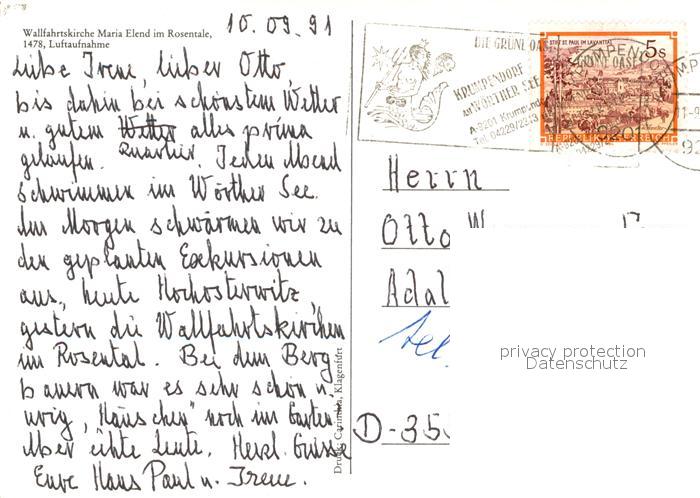 Wallfahrtskirche Maria Elend im Rosentale,
1478, Luftaufnahme
10.09.91
Liebe Irene, lieber Otto,
bis dahin bei schönstem Wetter
u. gutem Quartier alles prima
gelaufen. Jeden Abend
Schwimmen im Wörther See.
Am Morgen schwärmen wir zu
den geplanten Exkursionen
aus, heute Hochosterwitz,
gestern die Wallfahrtskirchen
im Rosental. Bei dem Berg
bauern war es sehr schön u.
urig, "Häuschen" noch im Garten.
Aber echte Leute. Herzl. Grüsse
Eure Hans Paul u. Irene.
Druck: Carinthia, Klagenfurt
DIE GRÜNE OASE
KRUMPENDORF
AM WÖRTHER SEE
A-9201 Krumpendorf
Tel. 04229/2313
STIFT ST. PAUL IM LAVANTTAL
5 S
REPUBLIK ÖSTERREICH
9201
Herrn
Otto
Adal
D-35
privacy protection
Datenschutz